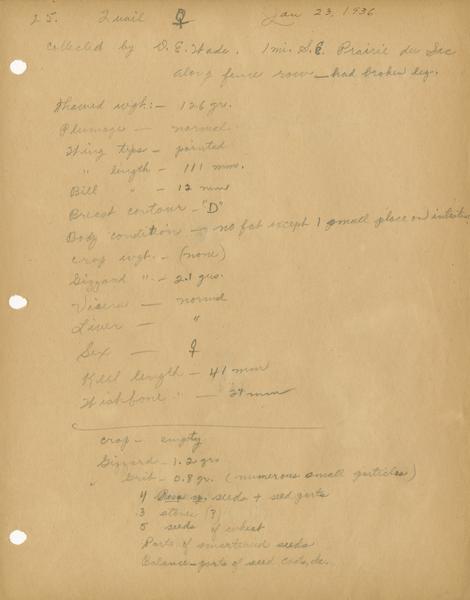 25. Quail ♀ Jan 23, 1936
Collected by D. E. Wade. 1 mi. S.E. Prairie du Sac
along fence row — had broken leg.
Thawed wgh: - 126 gr.
Plumage — normal.
Wing tips — pointed
" length - 111 mm.
Bill " - 12 mm
Breast contour - "D"
Body condition - no fat except 1 small place on
Crop wgt. - (none)
Gizzard " - 2.1 gms.
Viscera — normal
Liver — "
Sex — ♀
Keel length - 41 mm
Wishbone " -
Crop - empty
Gizzard - 1.2 grs
" Grit - 0.8 gr. (numerous small particles)
4 seeds + seed parts
3 stones (?)
5 seeds of wheat
Parts of smartweed seeds
Balance - parts of seed coats, etc.